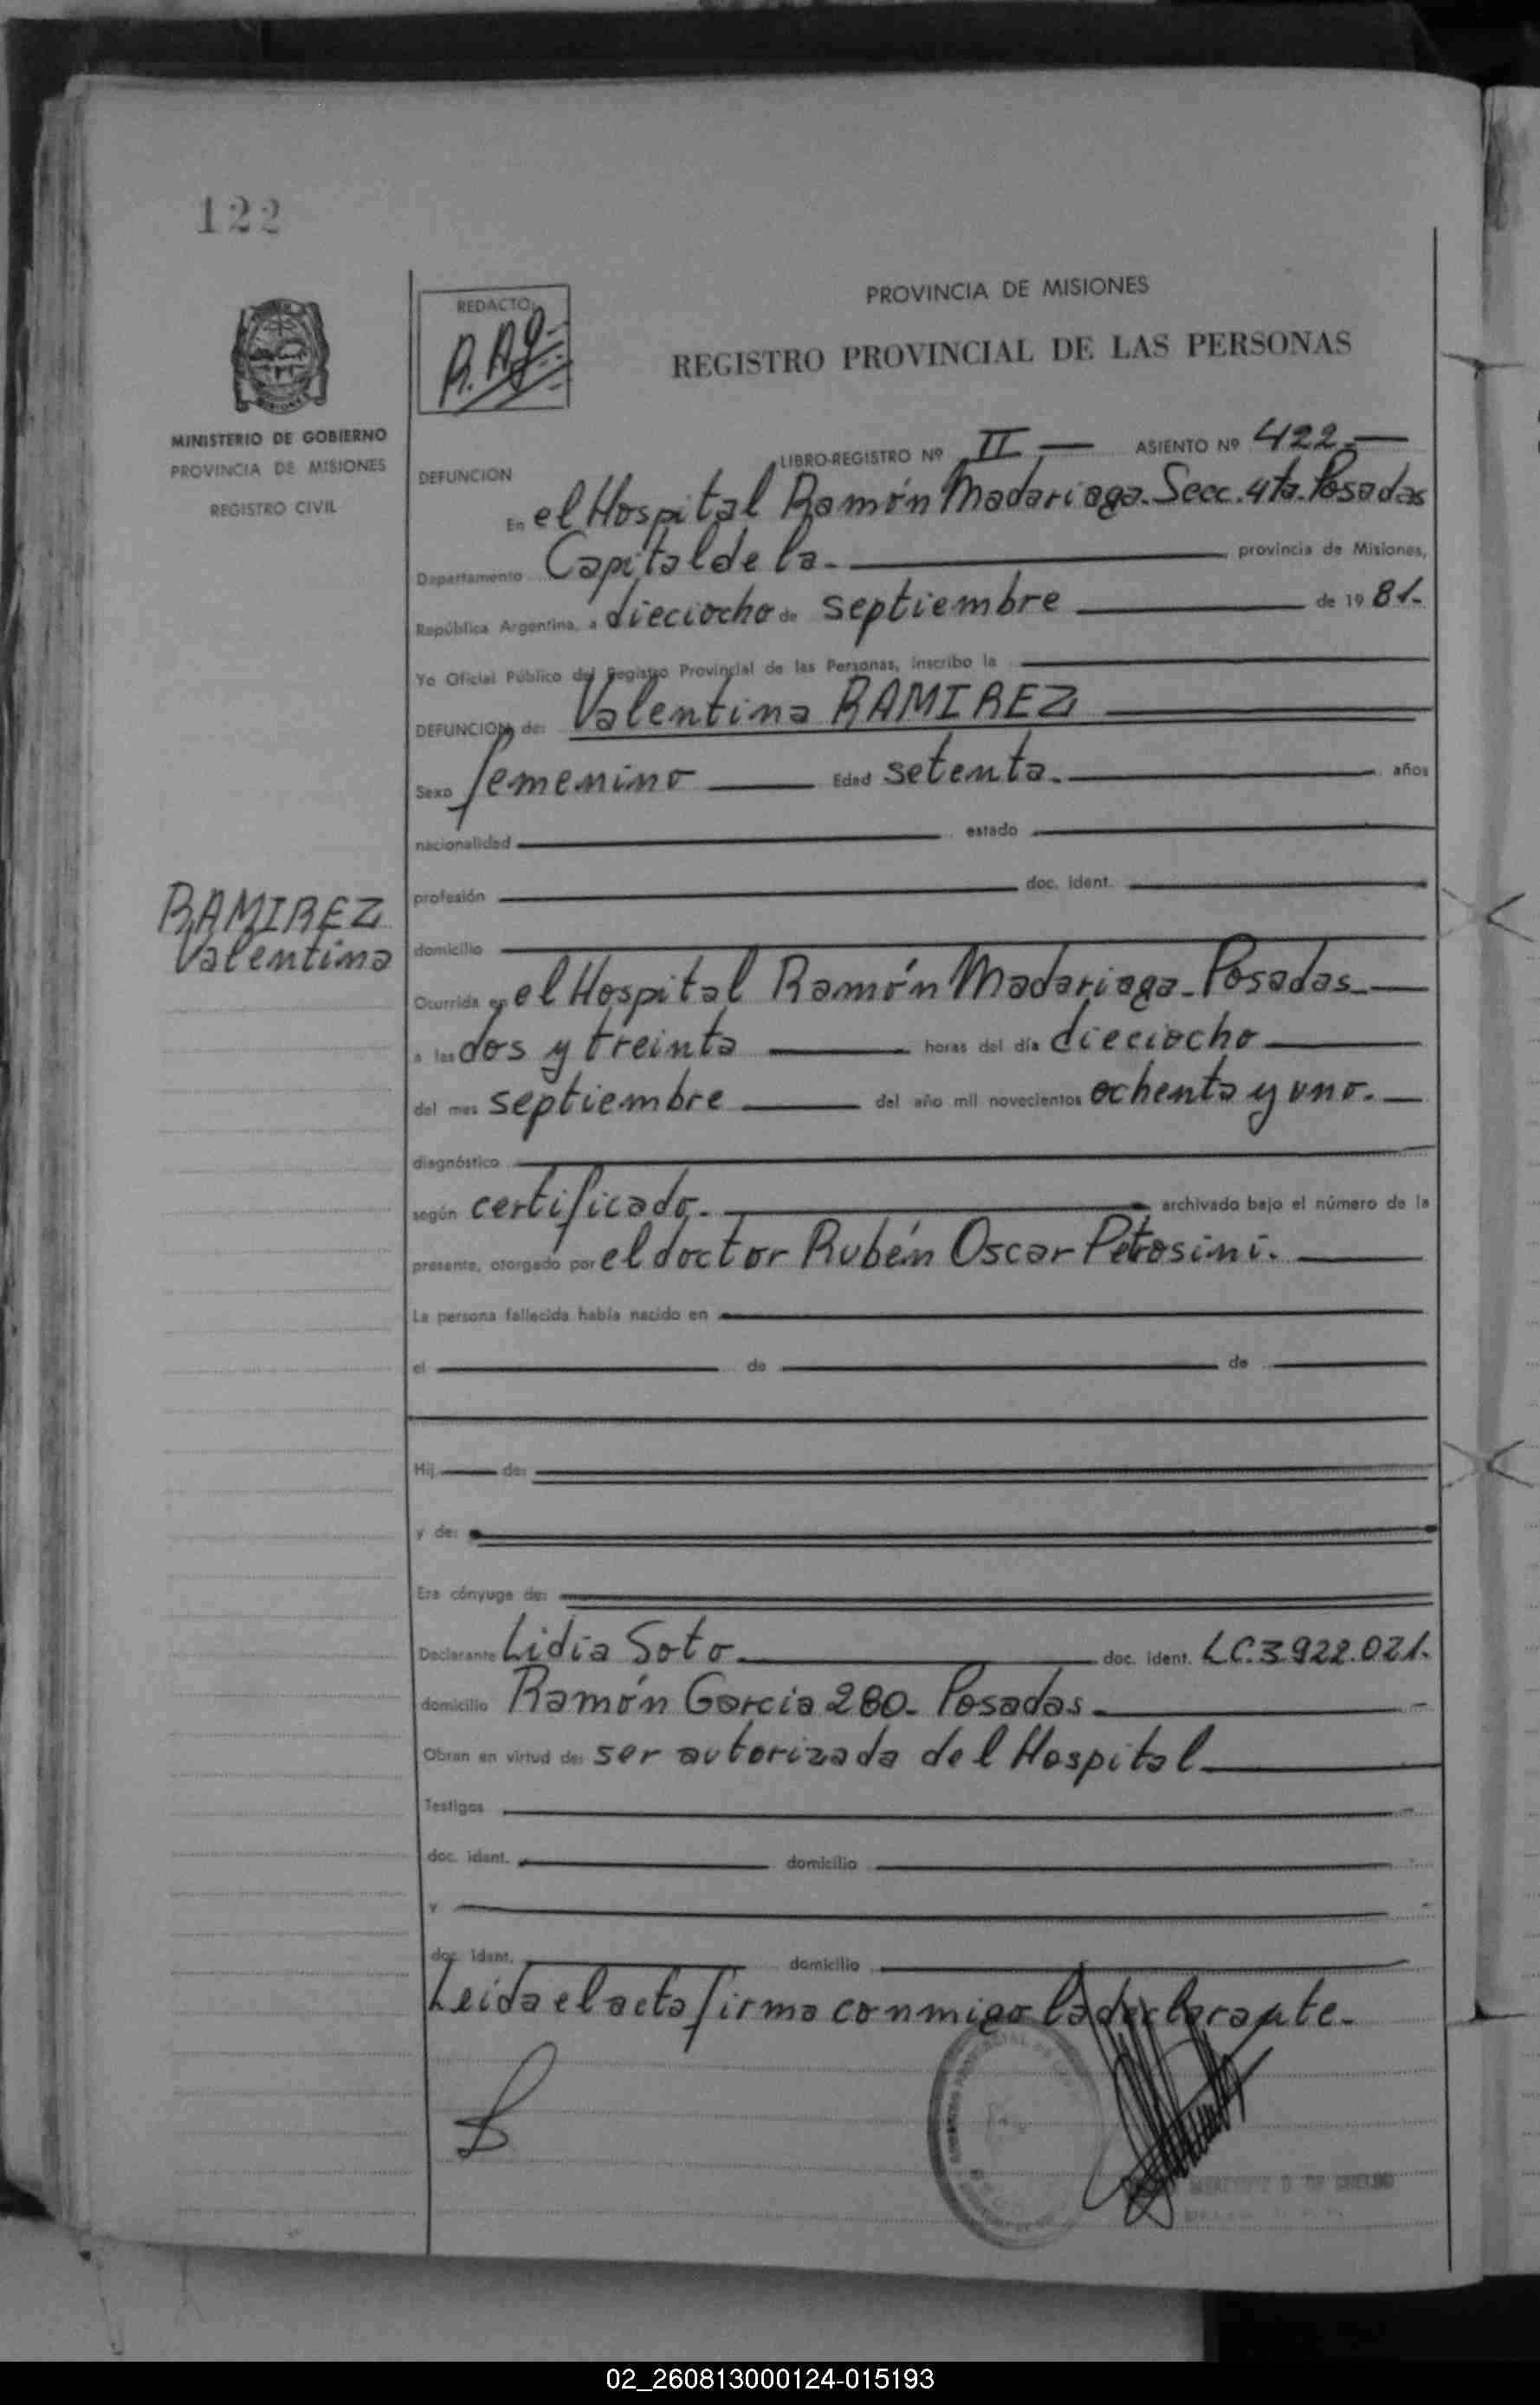 122
MINISTERIO DE GOBIERNO
PROVINCIA DE MISIONES
REGISTRO CIVIL
REDACTO:
PROVINCIA DE MISIONES
REGISTRO PROVINCIAL DE LAS PERSONAS
LIBRO-REGISTRO Nº II.— ASIENTO Nº 422.—
DEFUNCION
En el Hospital Ramón Madariaga. Secc. 4ta. Posadas
Departamento Capital de la.— provincia de Misiones,
República Argentina, a dieciocho de septiembre de 19 81.
Yo Oficial Público del Registro Provincial de las Personas, inscribo la
DEFUNCION de: Valentina RAMIREZ
Sexo femenino Edad setenta. años
nacionalidad estado
profesión doc. ident.
RAMIREZ
Valentina
domicilio
Ocurrida en el Hospital Ramón Madariaga. Posadas.
a las dos y treinta horas del día dieciocho
del mes septiembre del año mil novecientos ochenta y uno.
diagnóstico
según certificado. archivado bajo el número de la
presente, otorgado por el doctor Rubén Oscar Petrosini.
La persona fallecida había nacido en
el de de
Hij de:
y de:
Era cónyuge de:
Declarante Lidia Soto doc. ident. LC.3922.021.
domicilio Ramón Garcia 280. Posadas.
Obran en virtud de: ser autorizada del Hospital
Testigos
doc. ident. domicilio
y
doc. ident. domicilio
Leida el acta firma conmigo la declarante.
02_260813000124-015193